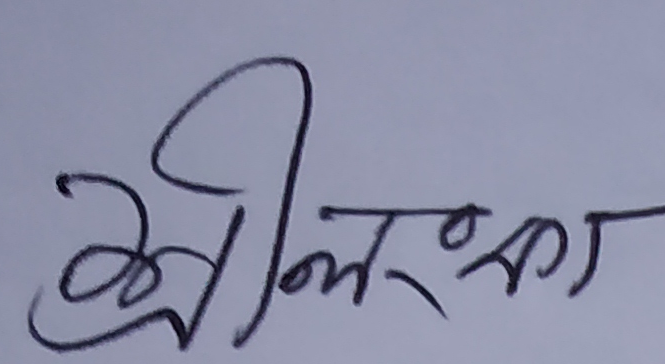 শ্রীলংকা